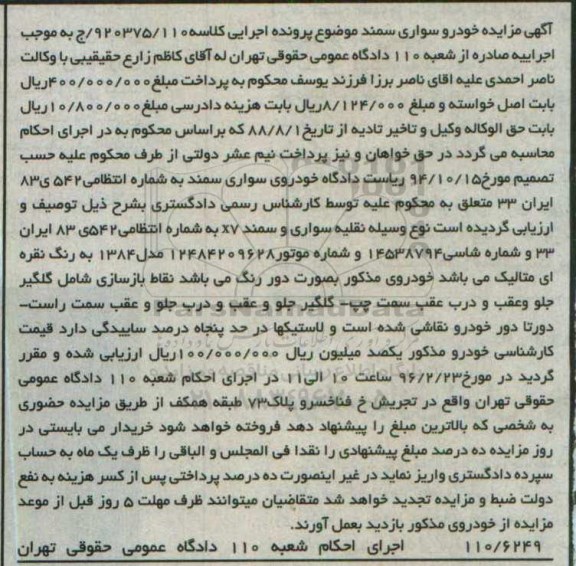 آگهی مزایده خودرو سواری سمند موضوع پرونده اجرایی کلاسه ۹۲۰۳۷۵/۱۱۰/ج به موجب
اجراییه صادره از شعبه ۱۱۰ دادگاه عمومی حقوقی تهران له آقای کاظم زارع حقیقیبی با وکالت
ناصر احمدی علیه اقای ناصر برزا فرزند یوسف محکوم به پرداخت مبلغ ۴۰۰/۰۰۰/۰۰۰ریال
بابت اصل خواسته و مبلغ ۸/۱۲۴/۰۰۰ریال بابت هزینه دادرسی مبلغ ۱۰/۸۰۰/۰۰۰ریال
بابت حق الوکاله وکیل و تاخیر تادیه از تاریخ ۸۸/۸/۱ که براساس محکوم به در اجرای احکام
محاسبه می گردد در حق خواهان و نیز پرداخت نیم عشر دولتی از طرف محکوم علیه حسب
تصمیم مورخ ۹۴/۱۰/۱۵ ریاست دادگاه خودروی سواری سمند به شماره انتظامی ۵۴۲ ی ۸۳
ایران ۳۳ متعلق به محکوم علیه توسط کارشناس رسمی دادگستری بشرح ذیل توصیف و
ارزیابی گردیده است نوع وسیله نقلیه سواری و سمند x۷ به شماره انتظامی ۵۴۲ی ۸۳ ایران
۳۳ و شماره شاسی ۱۴۵۳۸۷۹۴ و شماره موتور ۱۲۴۸۴۲۰۹۶۲۸ مدل ۱۳۸۴ به رنگ نقره
ای متالیک می باشد خودروی مذکور بصورت دور رنگ می باشد نقاط بازسازی شامل گلگیر
جلو وعقب و درب عقب سمت چپ– گلگیر جلو و عقب و درب جلو و عقب سمت راست–
دورتا دور خودرو نقاشی شده است و لاستیکها در حد پنجاه درصد ساییدگی دارد قیمت
کارشناسی خودرو مذکور یکصد میلیون ریال ۱۰۰/۰۰۰/۰۰۰ریال ارزیابی شده و مقرر
گردید در مورخ ۹۶/۲/۲۳ ساعت ۱۰ الی ۱۱ در اجرای احکام شعبه ۱۱۰ دادگاه عمومی
حقوقی تهران واقع در تجریش خ فناخسرو پلاک ۷۳ طبقه همکف از طریق مزایده حضوری
به شخصی که بالاترین مبلغ را پیشنهاد دهد فروخته خواهد شود خریدار می بایستی در
روز مزایده ده درصد مبلغ پیشنهادی را نقدا فی المجلس و الباقی را ظرف یک ماه به حساب
سپرده دادگستری واریز نماید در غیر اینصورت ده درصد پرداختی پس از کسر هزینه به نفع
دولت ضبط و مزایده تجدید خواهد شد متقاضیان میتوانند ظرف مهلت ۵ روز قبل از موعد
مزایده از خودروی مذکور بازدید بعمل آورند.
۱۱۰/۶۲۴۹ اجرای احکام شعبه ۱۱۰ دادگاه عمومی حقوقی تهران